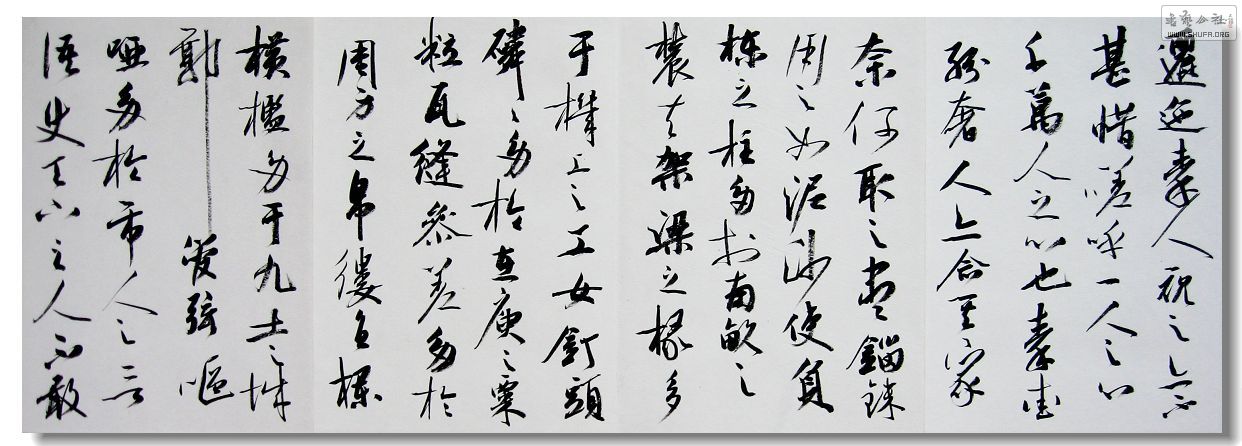 邐迤秦人視之亦不
甚惜嗟呼一人之心
千萬人之心也秦愛
紛奢人亦念其家
奈何取之盡錙銖
用之如泥沙使負
棟之柱多於南畝之
農夫架梁之椽多
于機上之工女釘頭
磷々多於在庾之粟
粒瓦縫參差多於
周身之帛縷直欄
橫檻多于九土之城
郭管弦嘔
啞多於市人之言
語使天下之人不敢
WWW.SHUFA.ORG